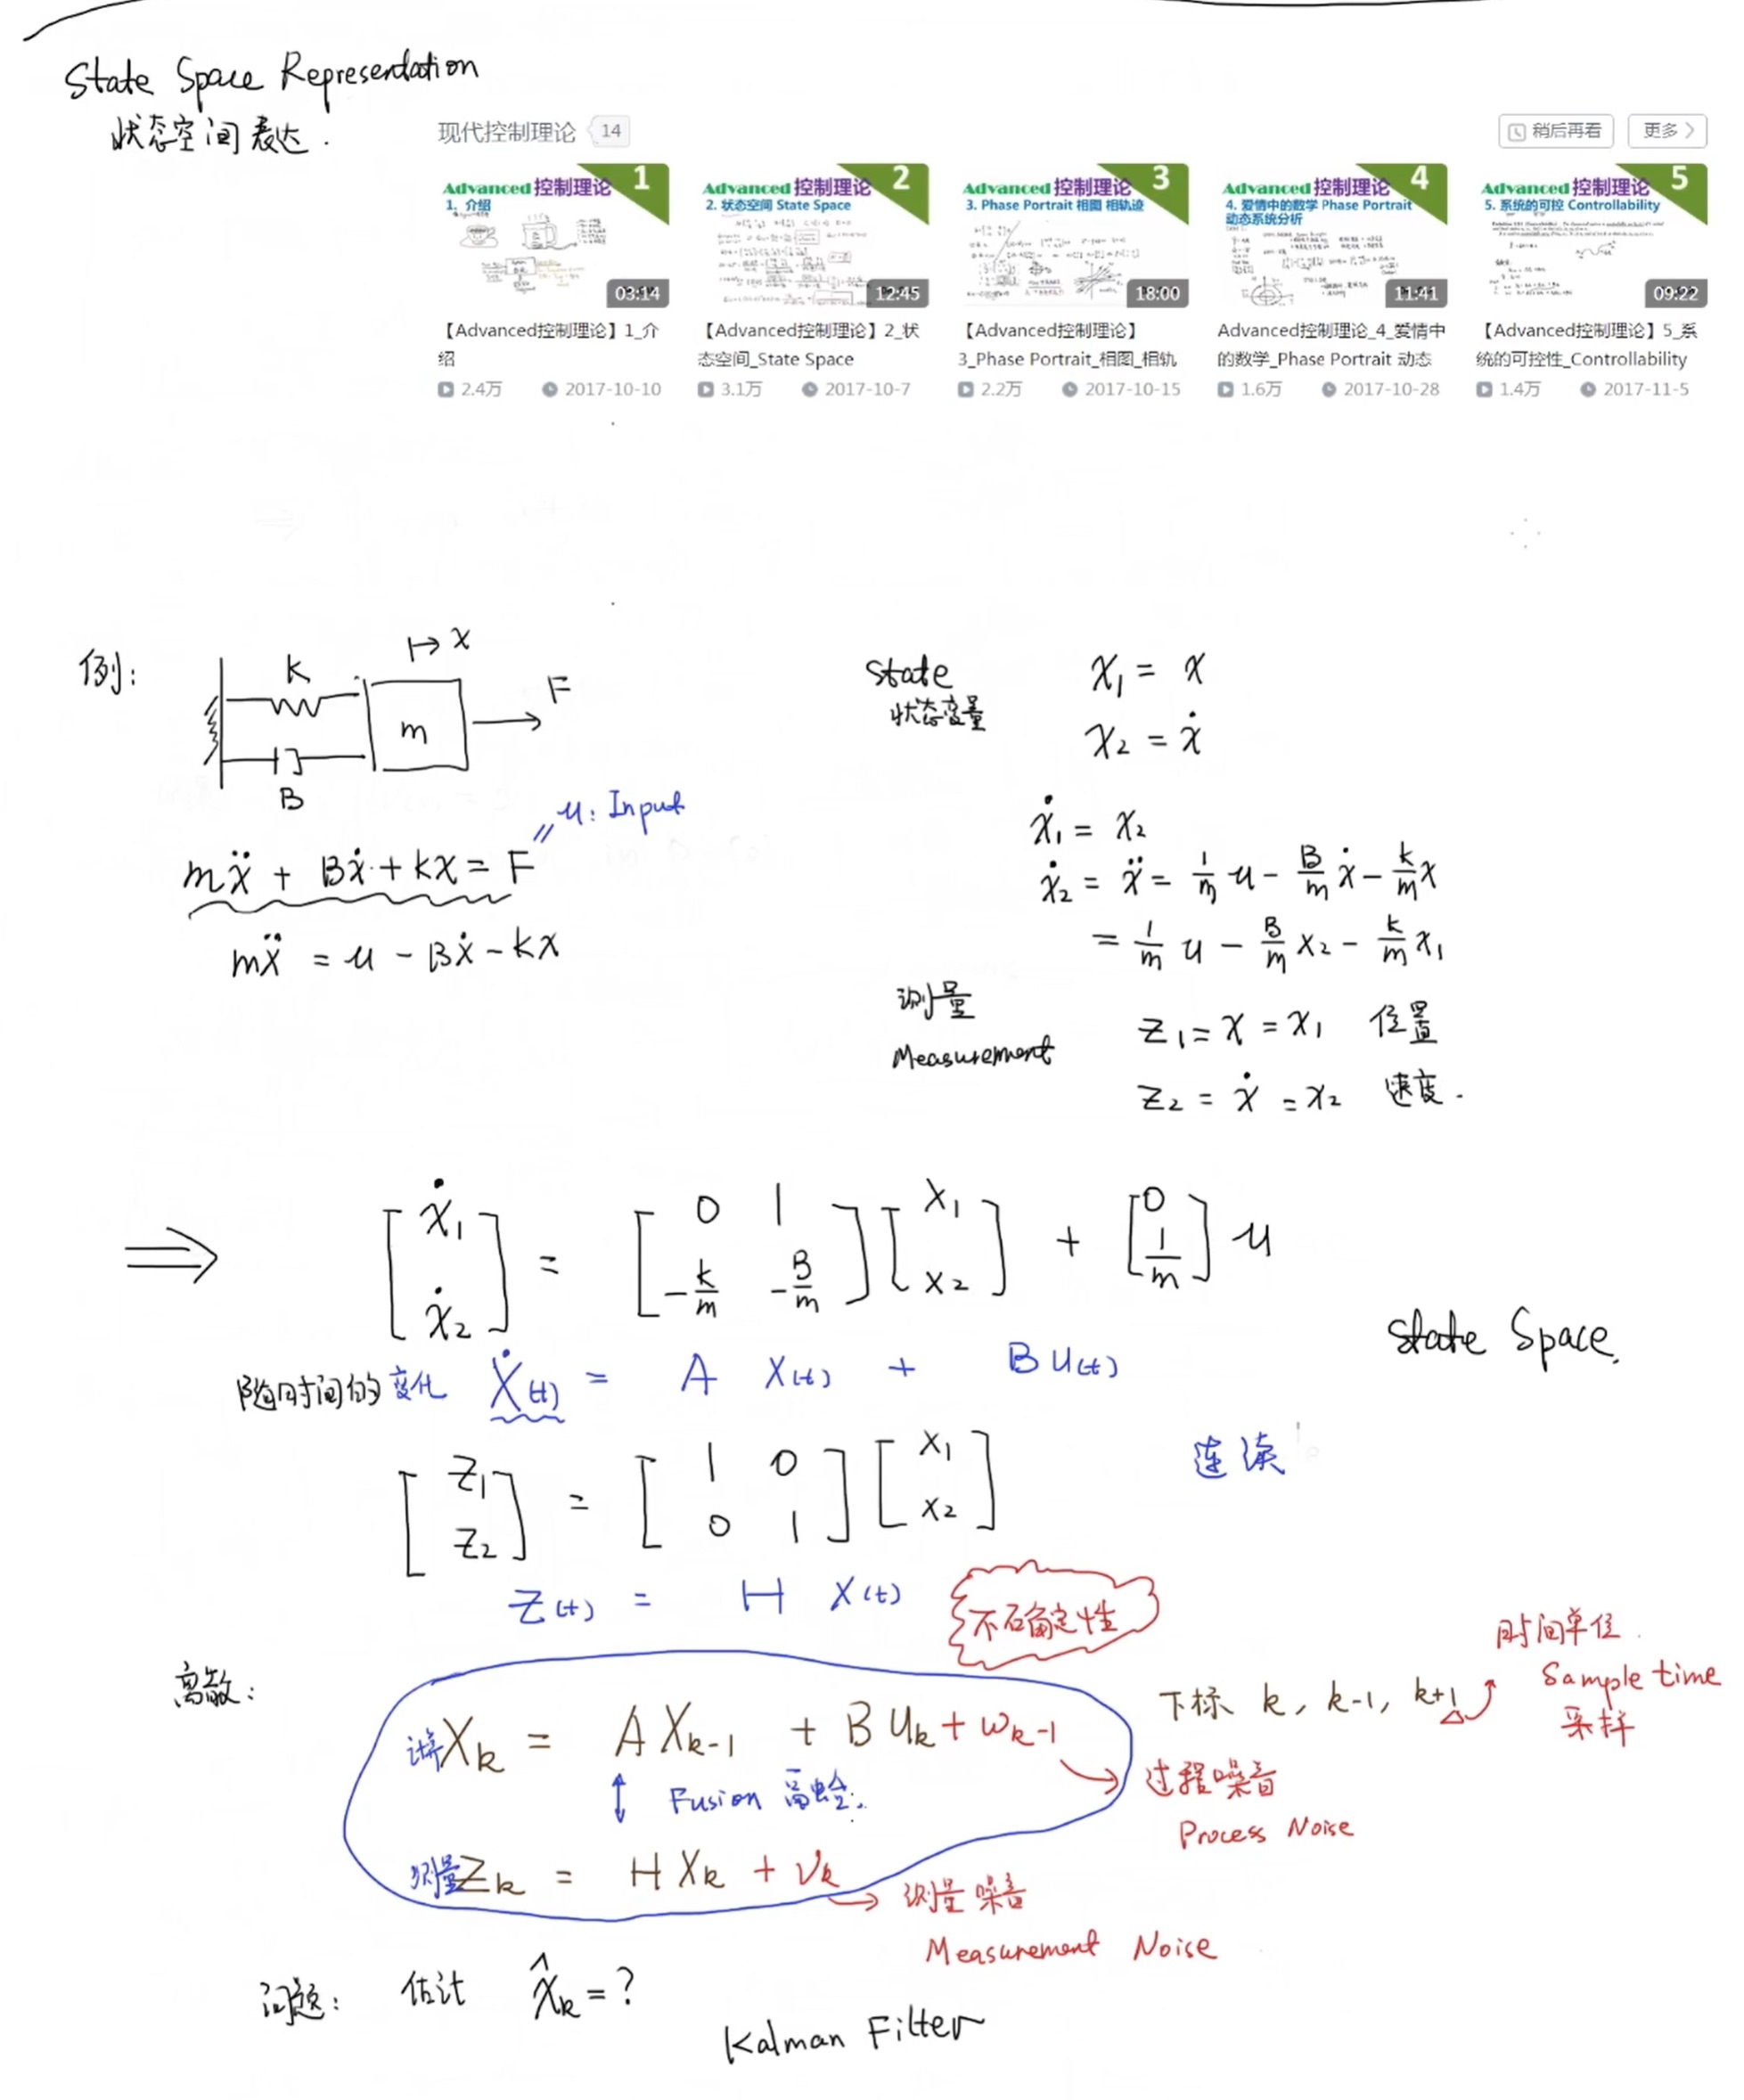 State Space Representation
状态空间表达.
现代控制理论 14
稍后再看 更多
Advanced 控制理论 1
1. 介绍
03:14
【Advanced控制理论】1_介
绍
2.4万 2017-10-10
Advanced 控制理论 2
2. 状态空间 State Space
12:45
【Advanced控制理论】2_状
态空间_State Space
3.1万 2017-10-7
Advanced 控制理论 3
3. Phase Portrait 相图 相轨迹
18:00
【Advanced控制理论】
3_Phase Portrait_相图_相轨
2.2万 2017-10-15
Advanced 控制理论 4
4. 爱情中的数学 Phase Portrait
动态系统分析
11:41
Advanced控制理论_4_爱情中
的数学_Phase Portrait 动态
1.6万 2017-10-28
Advanced 控制理论 5
5. 系统的可控 Controllability
09:22
【Advanced控制理论】5_系
统的可控性_Controllability
1.4万 2017-11-5
例:
k
↦ x
m
F
B
u: Input
mẍ + Bẋ + kx = F
mẍ = u - Bẋ - kx
State
状态变量
x₁ = x
x₂ = ẋ
ẋ₁ = x₂
ẋ₂ = ẍ = 1/m u - B/m ẋ - k/m x
= 1/m u - B/m x₂ - k/m x₁
测量
Measurement
z₁ = x = x₁ 位置
z₂ = ẋ = x₂ 速度.
⇒ [ẋ₁ ; ẋ₂] = [0 1 ; -k/m -B/m] [x₁ ; x₂] + [0 ; 1/m] u
State Space.
随时间的变化 Ẋ(t) = A X(t) + B u(t)
[z₁ ; z₂] = [1 0 ; 0 1] [x₁ ; x₂]
连续
Z(t) = H X(t)
不确定性
离散:
计算 Xₖ = A Xₖ₋₁ + B uₖ + ωₖ₋₁
下标 k, k-1, k+1
时间单位
Sample time
采样
Fusion 融合.
过程噪音
Process Noise
测量 Zₖ = H Xₖ + νₖ
测量噪音
Measurement Noise
问题: 估计 X̂ₖ = ?
Kalman Filter